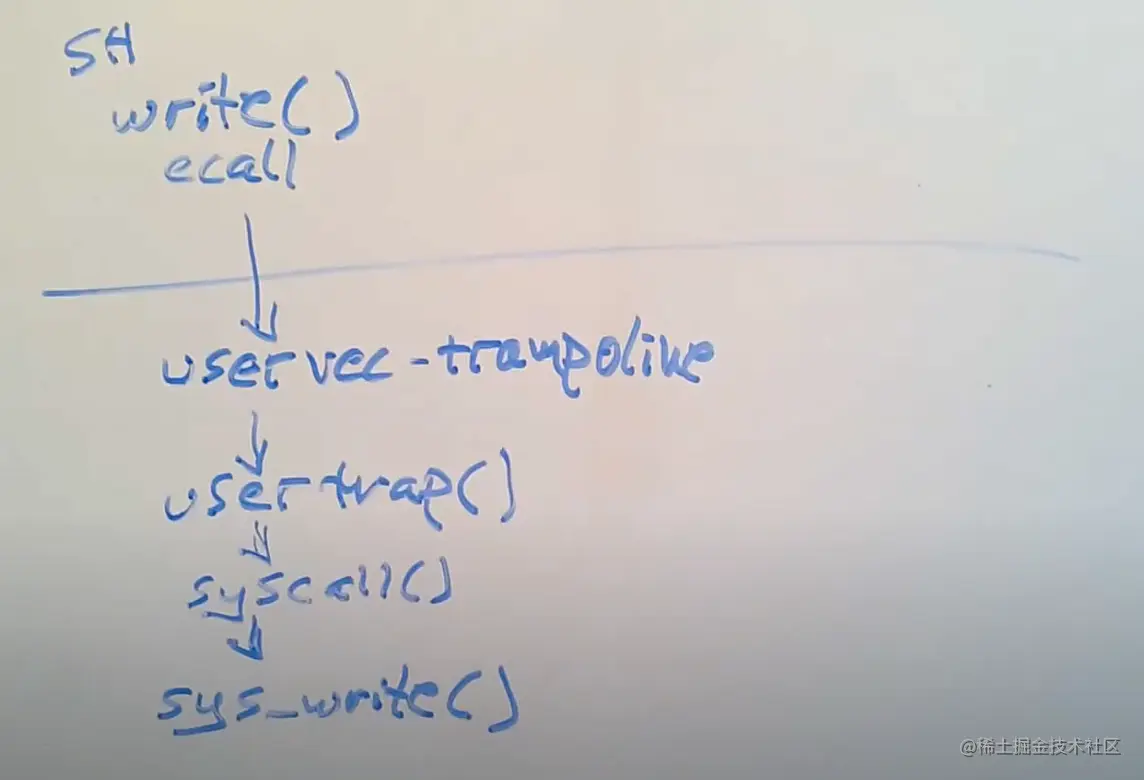 SH
write()
ecall
uservec-trampoline
usertrap()
syscall()
sys_write()
@稀土掘金技术社区